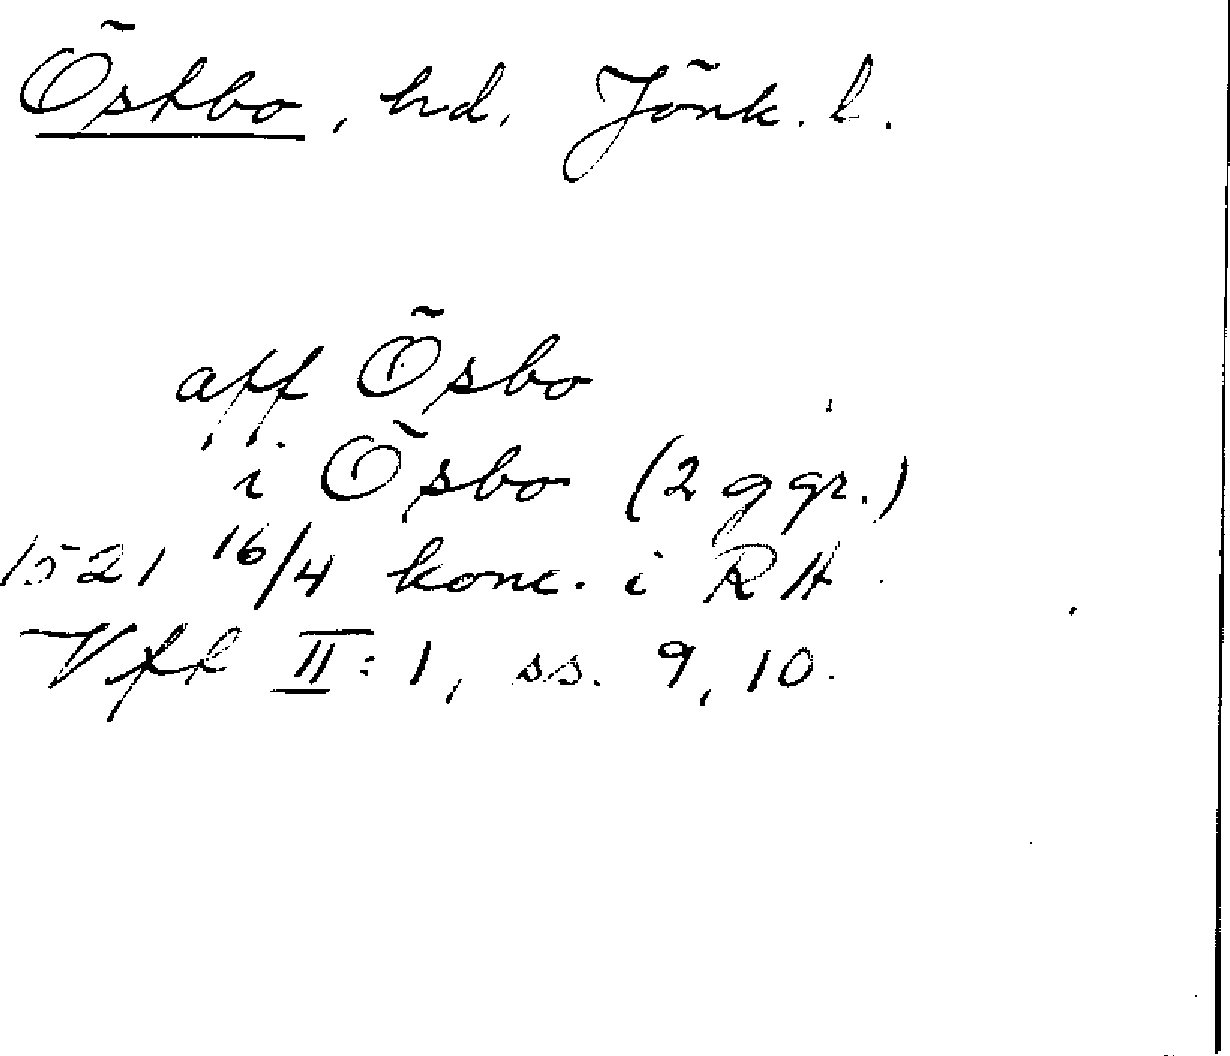 Östbo, hd, Jönk. l.
aff Ösbo
i Ösbo (2 ggr.)
1521 16/4 konc. i RA
Vfk II:1, ss. 9, 10.